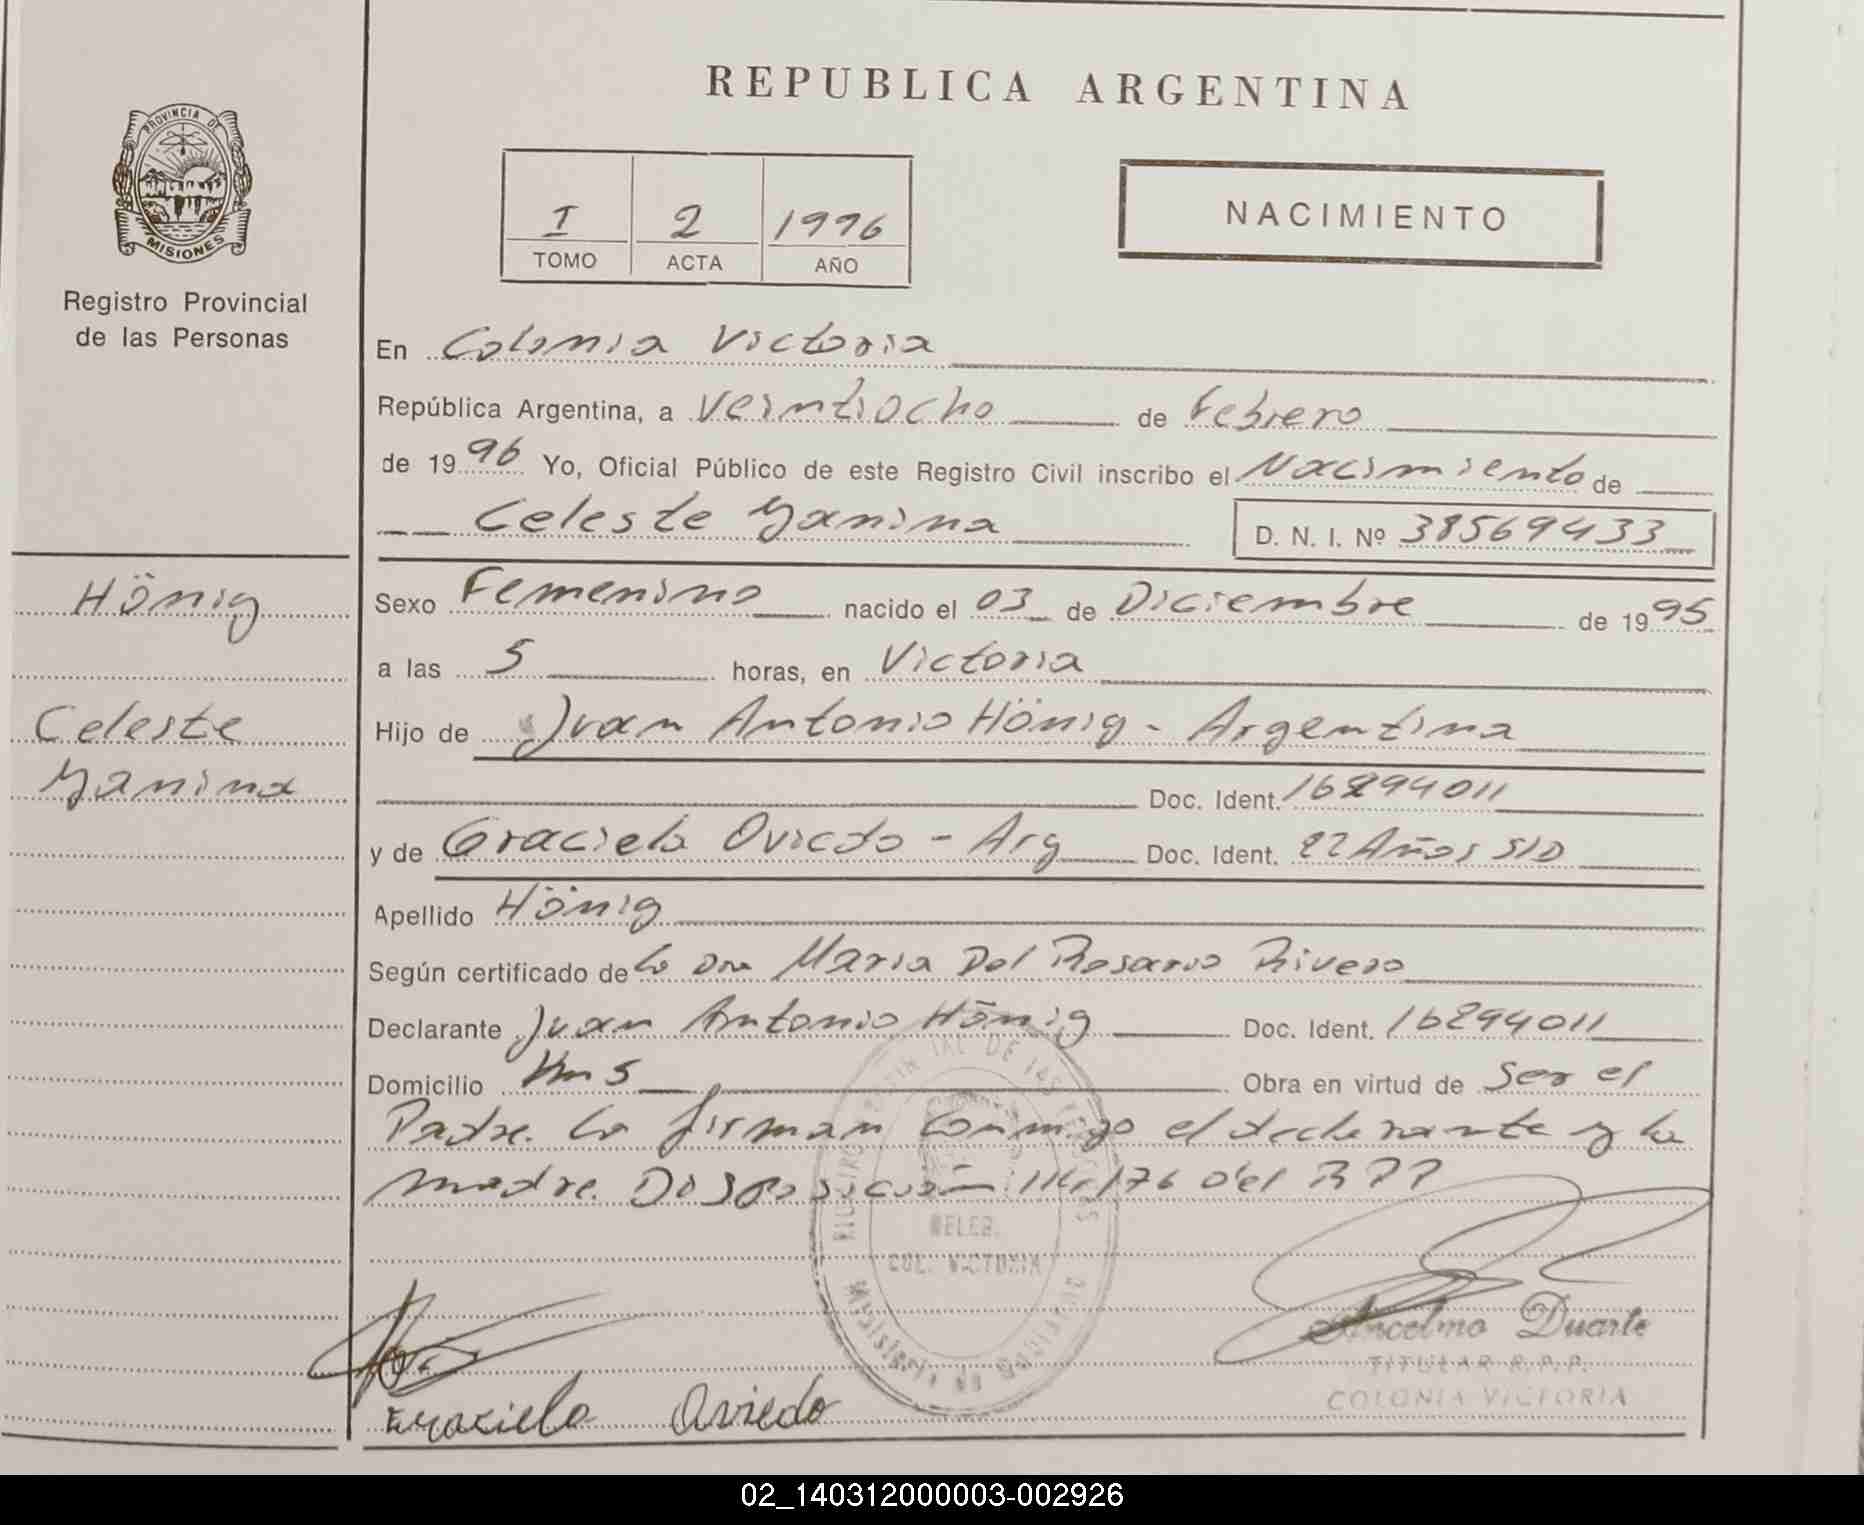 REPUBLICA ARGENTINA
PROVINCIA DE
MISIONES
Registro Provincial
de las Personas
I 2 1996
TOMO ACTA AÑO
NACIMIENTO
En Colonia Victoria
República Argentina, a Veintiocho de Febrero
de 1996 Yo, Oficial Público de este Registro Civil inscribo el Nacimiento de
Celeste Yanina D. N. I. Nº 38569433
Hönig
Celeste
Yanina
Sexo Femenino nacido el 03 de Diciembre de 1995
a las 5 horas, en Victoria
Hijo de Juan Antonio Hönig - Argentina
Doc. Ident. 16294011
y de Graciela Oviedo - Arg Doc. Ident. 22 Años S/D
Apellido Hönig
Según certificado de la Dra Maria Del Rosario Rivero
Declarante Juan Antonio Hönig Doc. Ident. 16294011
Domicilio Km 5 Obra en virtud de Ser el
Padre. La firman conmigo el declarante y la
madre. Disposición 114/76 del RPP
DELEG.
COL. VICTORIA
Graciela Oviedo
Ancelmo Duarte
TITULAR R.P.P.
COLONIA VICTORIA
02_140312000003-002926